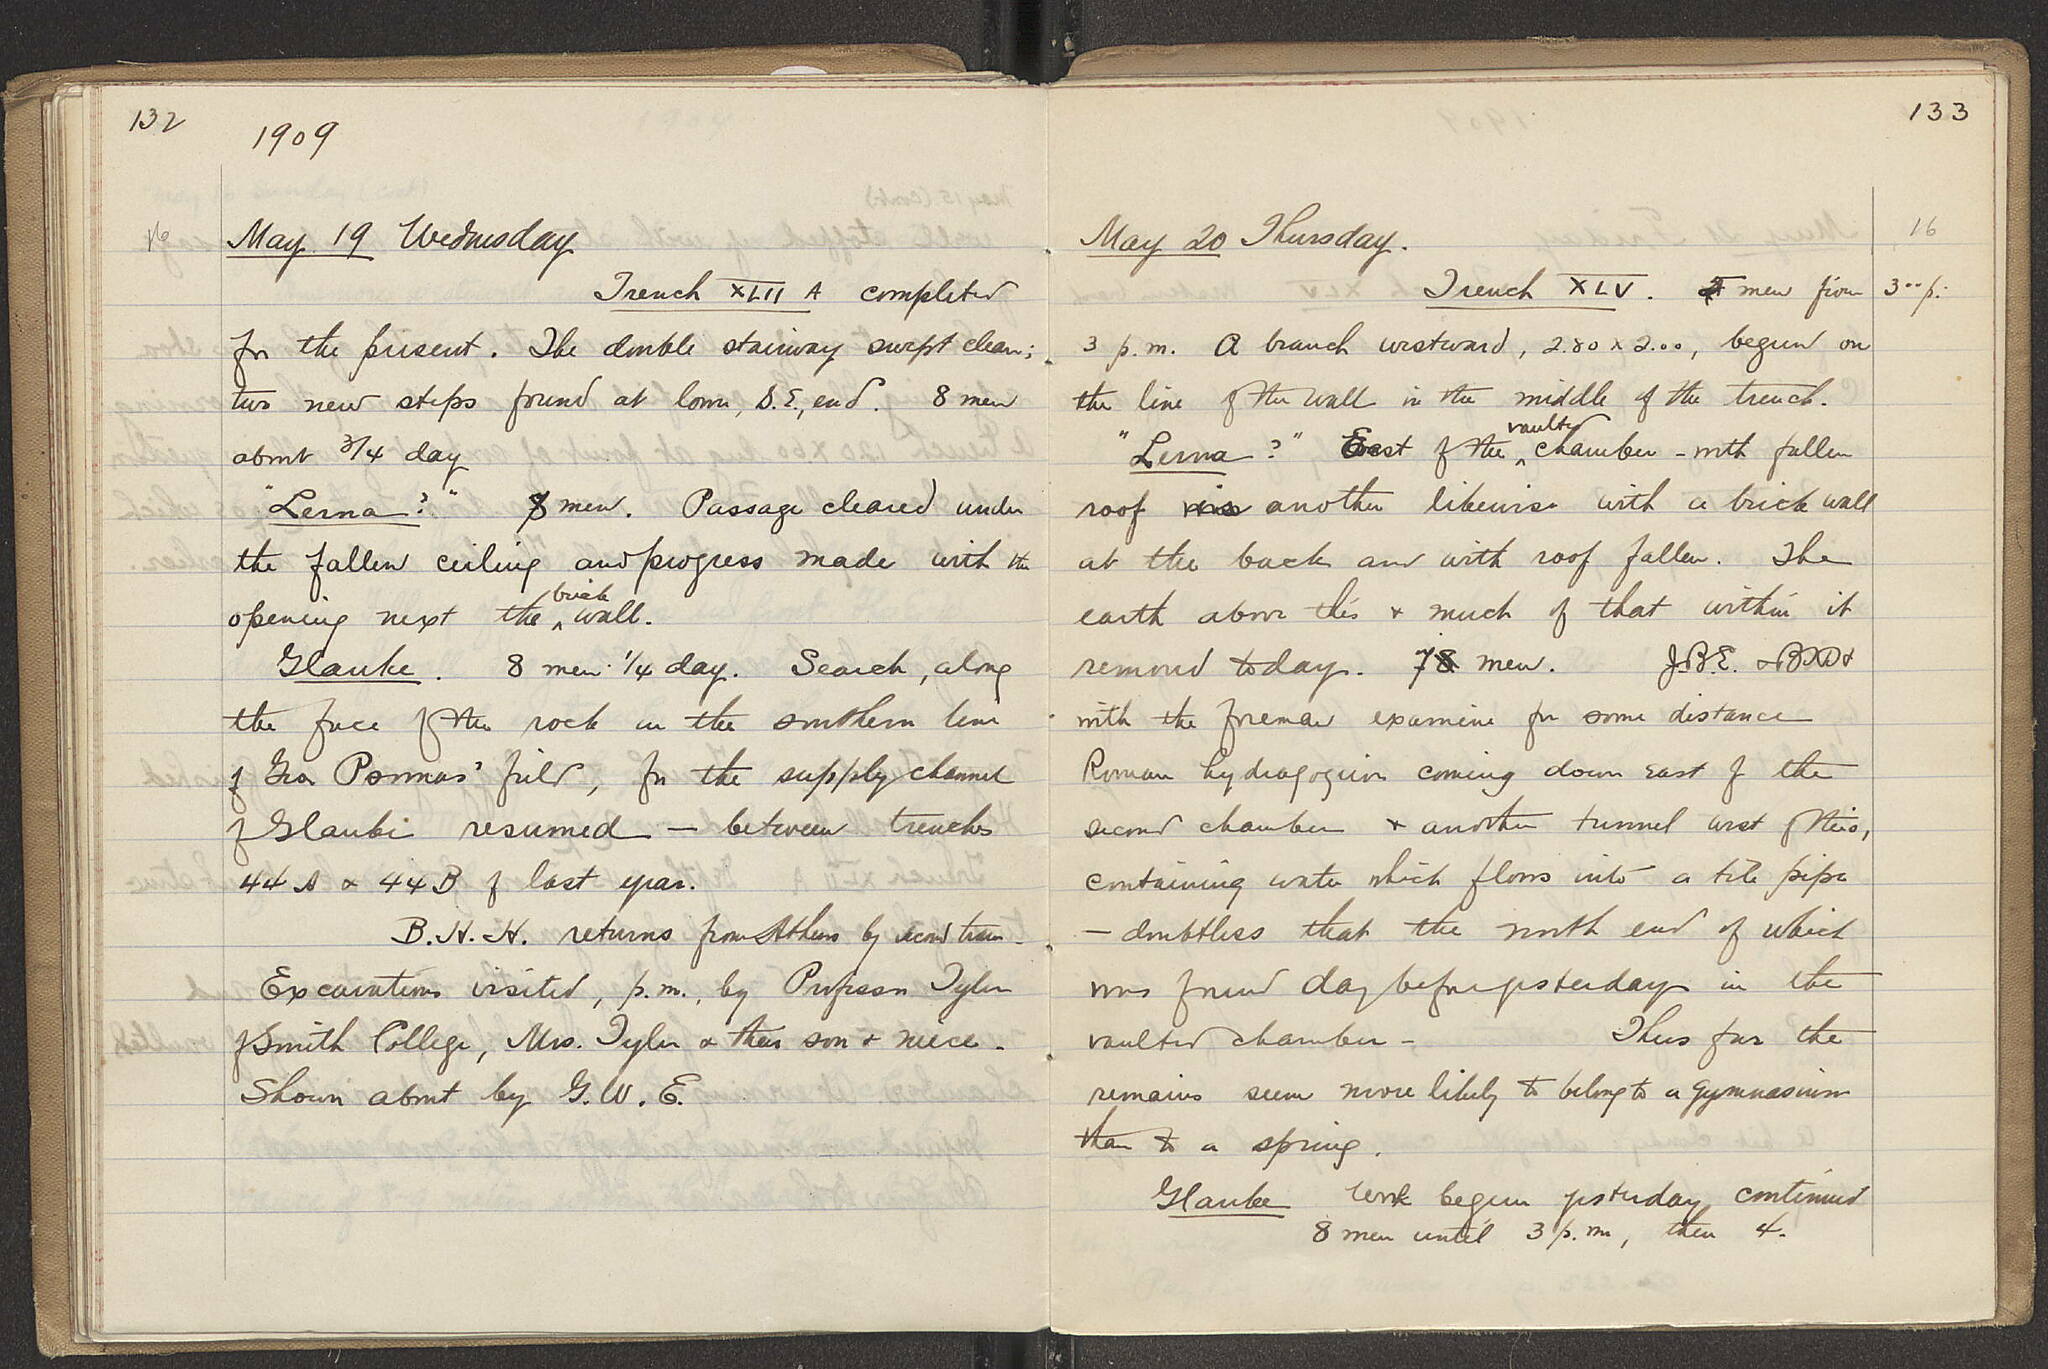 132
1909
16
May 19 Wednesday
Trench XLII A completed
for the present. The double stairway swept clean;
two new steps found at lower, S.E., end. 8 men
about 3/4 day
"Lerna?" 8 men. Passage cleared under
the fallen ceiling and progress made with the
opening next the brick wall.
Glauke. 8 men 1/4 day. Search, along
the face of the rock in the southern line
of Geo. field, for the supply channel
of Glauke resumed — between trenches
44 A & 44 B of last year.
B.H.H. returns from Athens by second train.
Excavations visited, p.m., by Professor Tyler
of Smith College, Mrs. Tyler & their son & niece.
Shown about by G.W.E.
133
16
May 20 Thursday.
Trench XLV. 4 men from
3⁰⁰ p.
3 p.m. A branch westward, 2.80 x 2.00, begun on
the line of the wall in the middle of the trench.
"Lerna?" East of the vaulted chamber - with fallen
roof is another likewise with a brick wall
at the back and with roof fallen. The
earth above this & much of that within it
removed today. 7 men. J.B.E. &
with the foreman examine for some distance
Roman hydragogeion coming down east of the
second chamber & another tunnel west of this,
containing water which flows into a tile pipe
— doubtless that the north end of which
was found day before yesterday in the
vaulted chamber - Thus far the
remains seem more likely to belong to a gymnasium
than to a spring.
Glauke Work begun yesterday continued
8 men until 3 p.m, then 4.